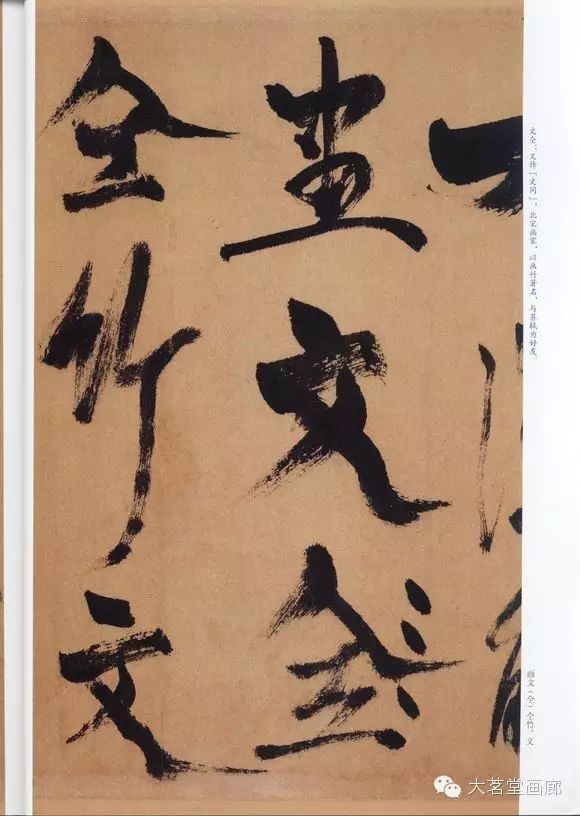 文仝：又作「文同」，北宋画家，以画竹著名，与苏轼为好友。
画文（仝）仝竹，文
畫文仝
仝竹文
大茗堂画廊